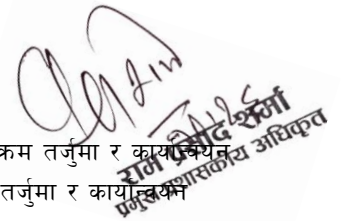 क्रम तर्जुमा र कार्यान्वयन
तर्जुमा र कार्यान्वयन
राम प्रसाद शर्मा
प्रमुख प्रशासकीय अधिकृत